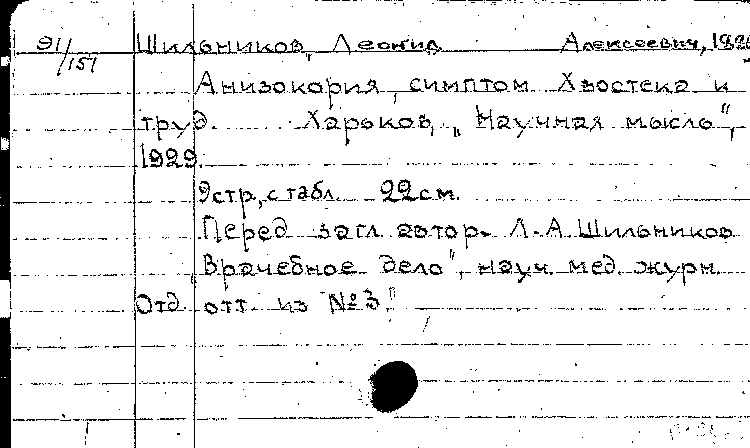 91/151 Шильников, Леонид Алексеевич,
Анизокория, симптом Хвостека и
труд. Харьков, „Научная мысль",
1929.
9 стр., с табл. 22 см.
Перед загл. автор. Л.А. Шильников
„Врачебное дело", науч. мед. журн.
Отд. отт. из № 3."